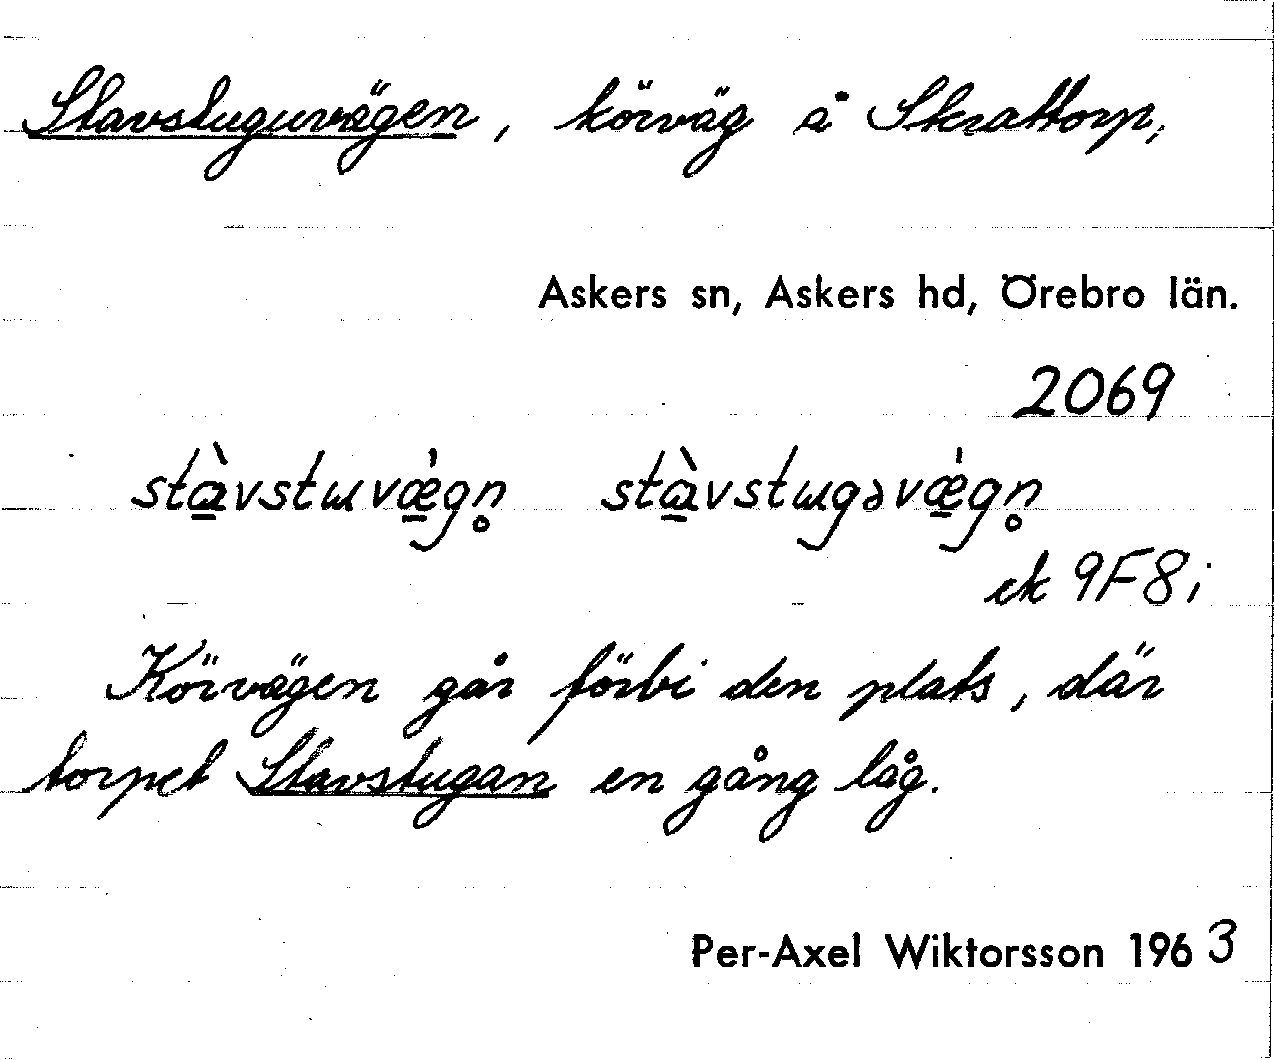 Stavstuguvägen, körväg å Skrattorp,
Askers sn, Askers hd, Örebro län.
2069
stà̱vstɯvæ̱̍gn̥ stà̱vstɯgəvæ̱̍gn̥
ek 9F8i
Körvägen går förbi den plats, där
torpet Stavstugan en gång låg.
Per-Axel Wiktorsson 1963